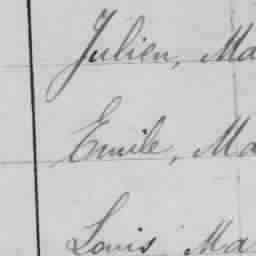 Julien, Ma
Emile, Ma
Louis Ma